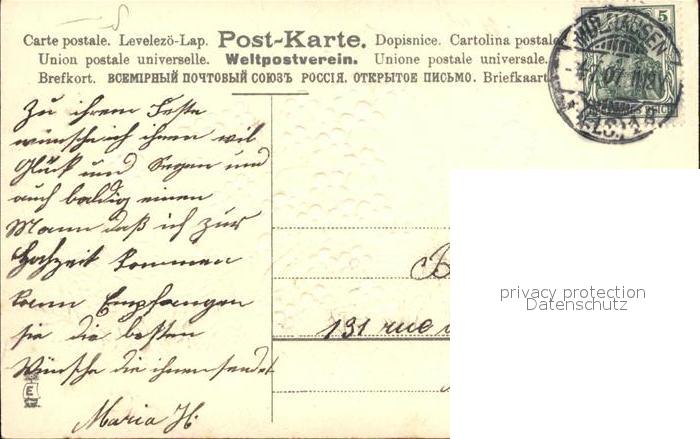 Carte postale. Levelezö-Lap. Post-Karte. Dopisnice. Cartolina postale
Union postale universelle. Weltpostverein. Unione postale universale.
Brefkort. ВСЕМІРНЫЙ ПОЧТОВЫЙ СОЮЗЪ РОССІЯ. ОТКРЫТОЕ ПИСЬМО. Briefkaart
5
MÜLHAUSEN
Zu ihrem Feste
wünsche ich ihnen vil
Glück und Segen und
auch baldig einen
Mann daß ich zur
Hochzeit kommen
kann Empfangen
sie die besten
Wünsche die ihnen sendet
Maria H.
131 rue
privacy protection
Datenschutz
E